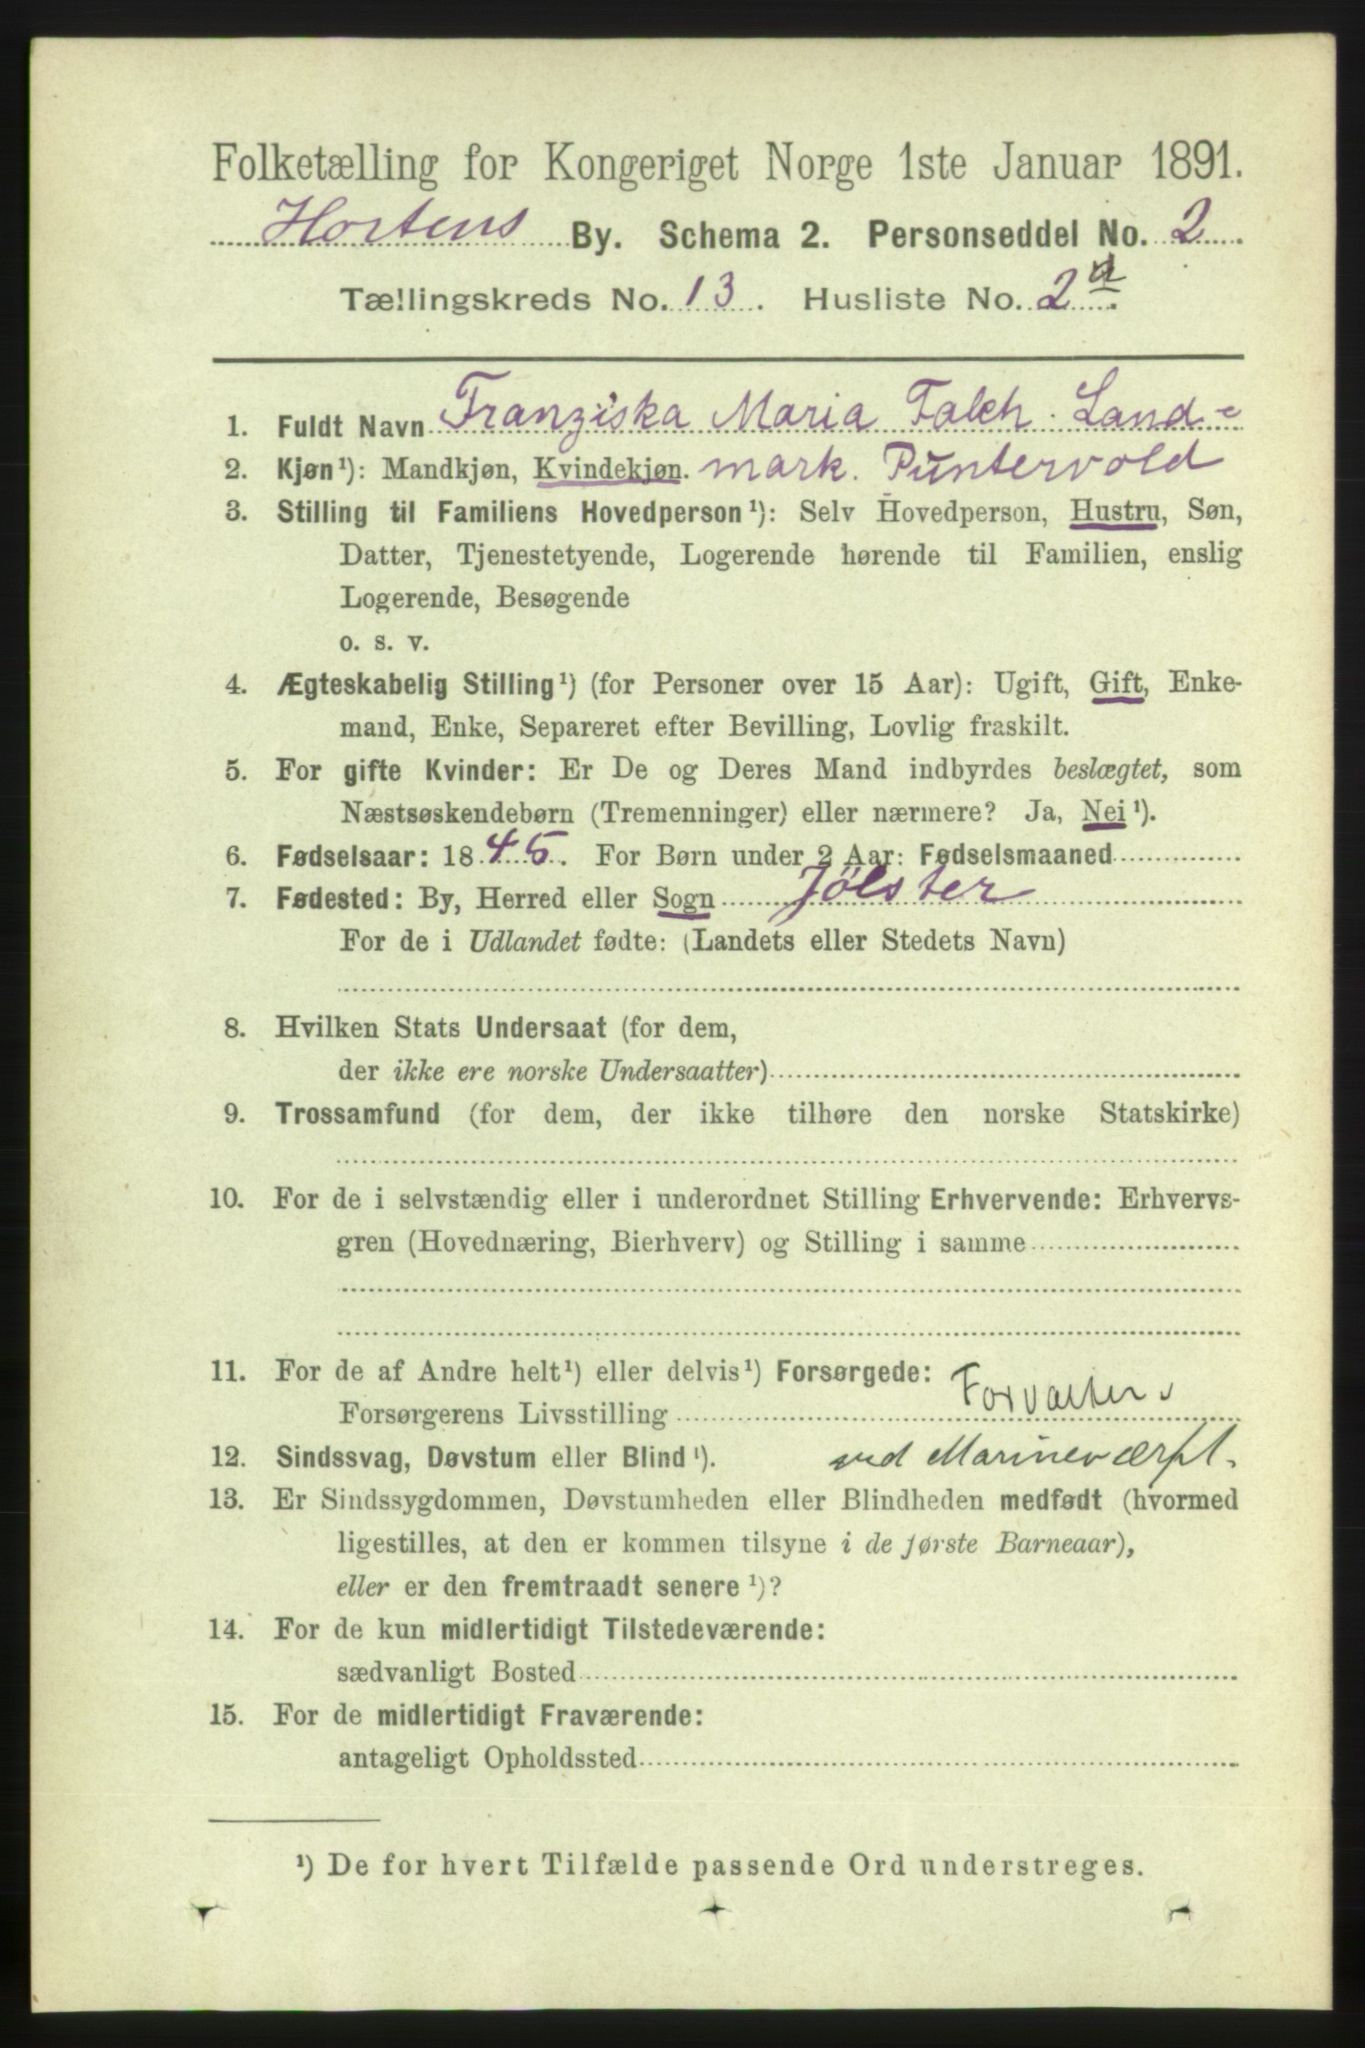 Folketælling for Kongeriget Norge 1ste Januar 1891.
Hortens By. Schema 2. Personseddel No. 2
Tællingskreds No. 13. Husliste No. 2a.
1. Fuldt Navn Franziska Maria Falch Land-
2. Kjøn¹): Mandkjøn, Kvindekjøn. mark. Puntervold
3. Stilling til Familiens Hovedperson¹): Selv Hovedperson, Hustru, Søn,
Datter, Tjenestetyende, Logerende hørende til Familien, enslig
Logerende, Besøgende
o. s. v.
4. Ægteskabelig Stilling¹) (for Personer over 15 Aar): Ugift, Gift, Enke-
mand, Enke, Separeret efter Bevilling, Lovlig fraskilt.
5. For gifte Kvinder: Er De og Deres Mand indbyrdes beslægtet, som
Næstsøskendebørn (Tremenninger) eller nærmere? Ja, Nei¹).
6. Fødselsaar: 1845. For Børn under 2 Aar: Fødselsmaaned
7. Fødested: By, Herred eller Sogn Jølster
For de i Udlandet fødte: (Landets eller Stedets Navn)
8. Hvilken Stats Undersaat (for dem,
der ikke ere norske Undersaatter)
9. Trossamfund (for dem, der ikke tilhøre den norske Statskirke)
10. For de i selvstændig eller i underordnet Stilling Erhvervende: Erhvervs-
gren (Hovednæring, Bierhverv) og Stilling i samme
11. For de af Andre helt¹) eller delvis¹) Forsørgede:
Forsørgerens Livsstilling Forvalter
12. Sindssvag, Døvstum eller Blind¹). ved Marineværft.
13. Er Sindssygdommen, Døvstumheden eller Blindheden medfødt (hvormed
ligestilles, at den er kommen tilsyne i de første Barneaar),
eller er den fremtraadt senere¹)?
14. For de kun midlertidigt Tilstedeværende:
sædvanligt Bosted
15. For de midlertidigt Fraværende:
antageligt Opholdssted
¹) De for hvert Tilfælde passende Ord understreges.